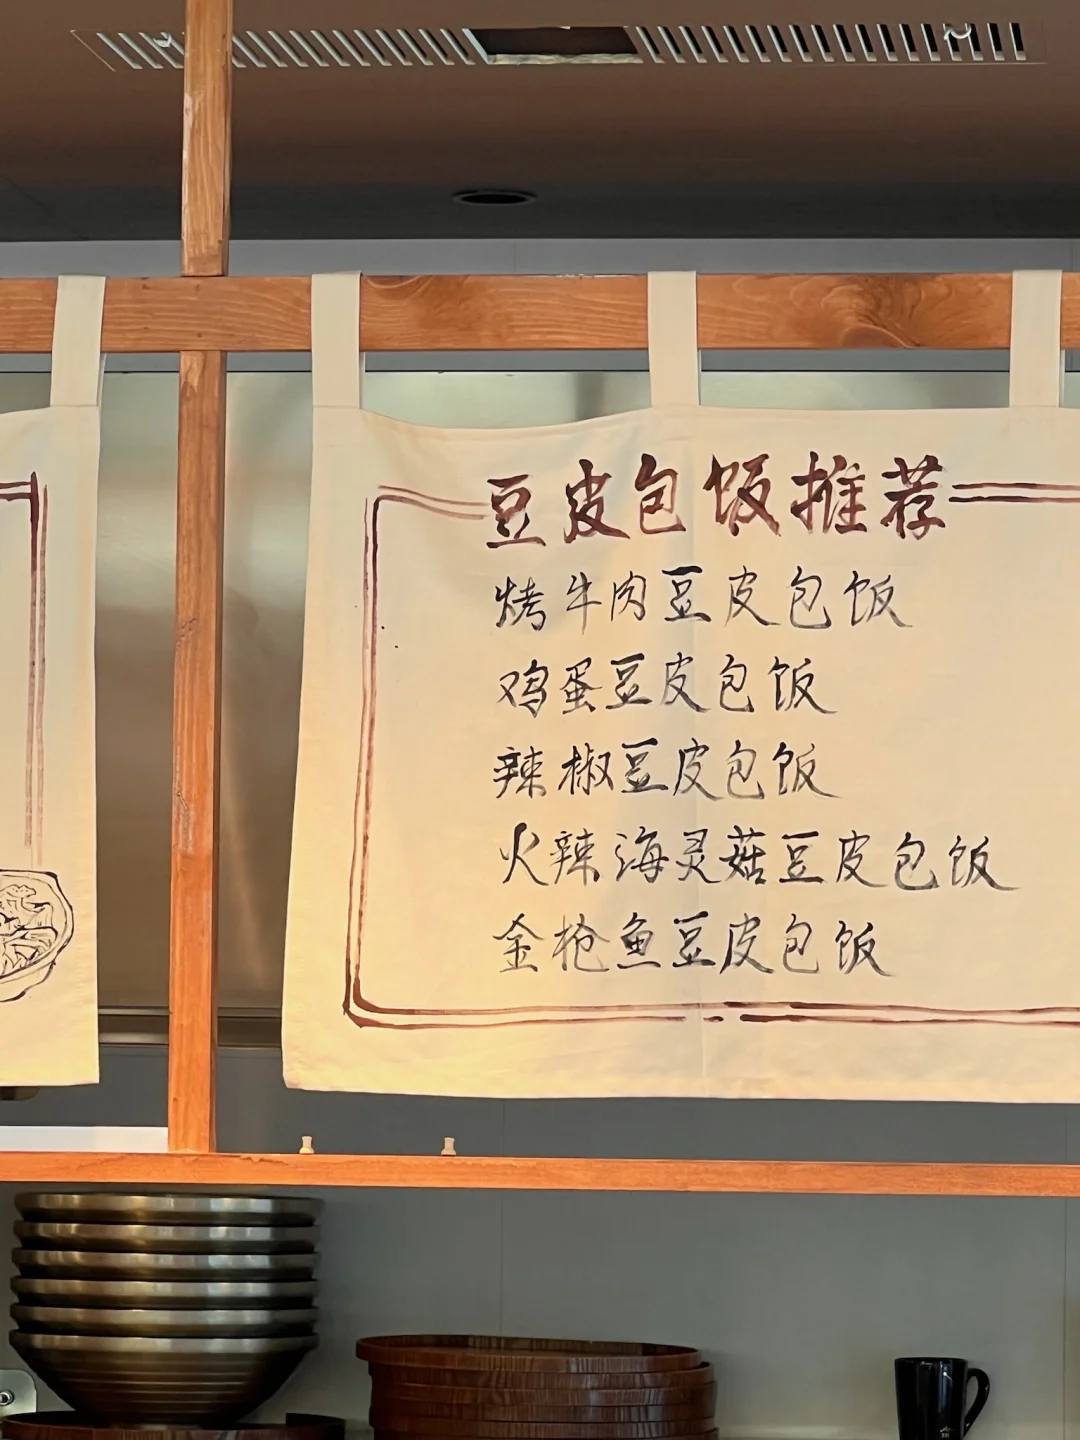 豆皮包饭推荐
烤牛肉豆皮包饭
鸡蛋豆皮包饭
辣椒豆皮包饭
火辣海灵菇豆皮包饭
金枪鱼豆皮包饭